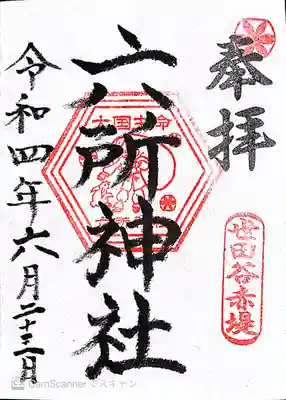 奉拝
世田谷赤堤
六所神社
大国主命
令和四年六月二十三日
CamScanner でスキャン